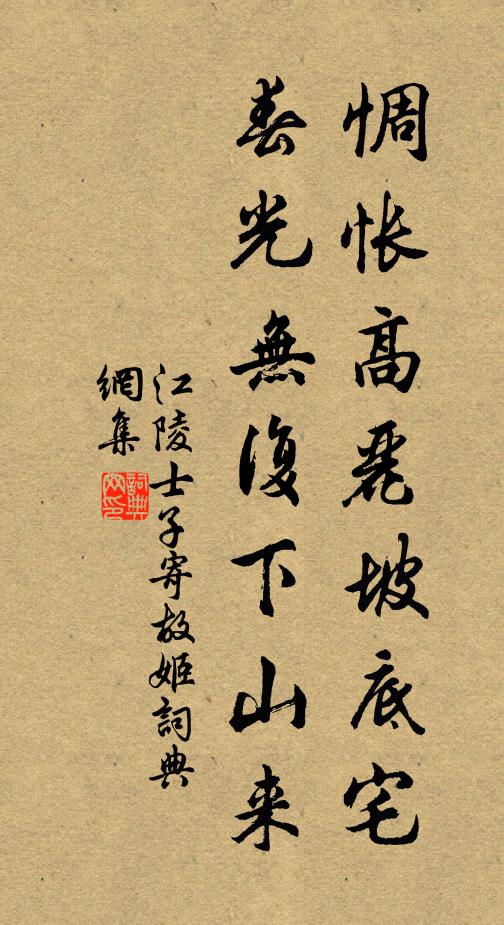 惆怅高麗坡底宅
春光無復下山来
江陵士子寄故姬詞典
網集
詞典
网印